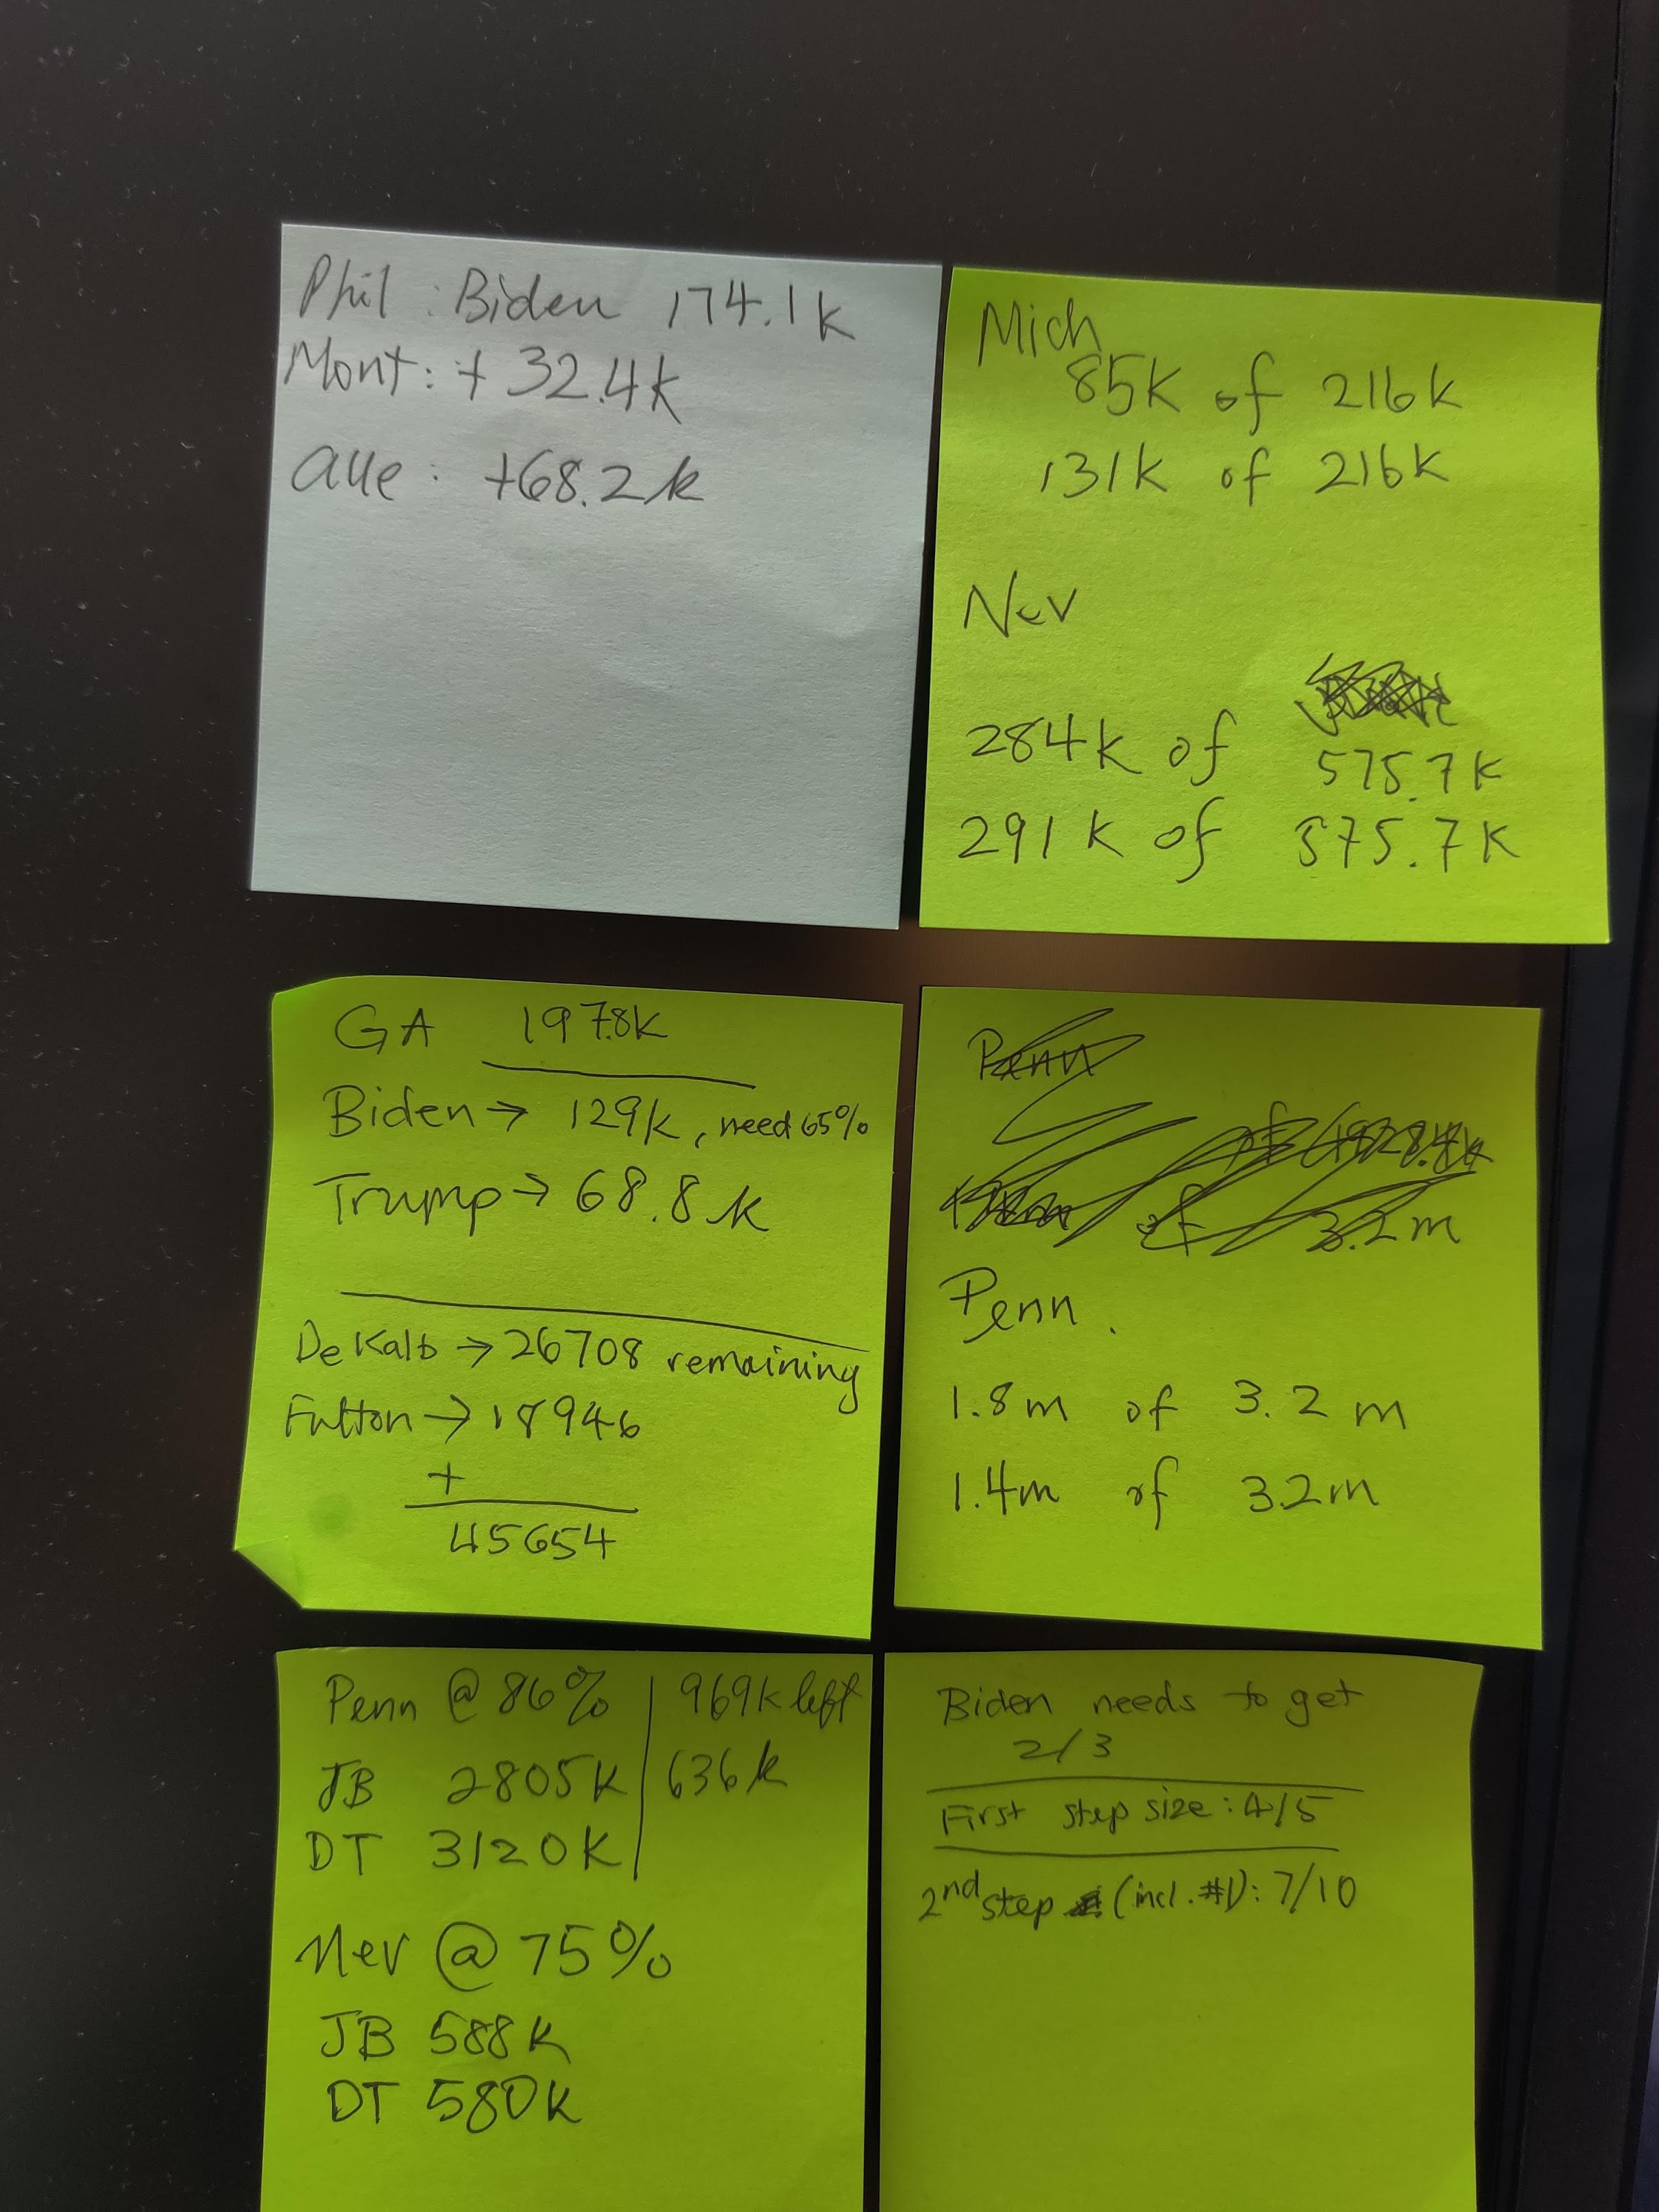 Phil : Biden 174.1k
Mont: + 32.4k
Alle : +68.2k
Mich
85K of 216K
131K of 216K
Nev
284k of 575.7K
291K of 575.7K
GA 197.8K
Biden → 129k, need 65%
Trump → 68.8k
DeKalb → 26708 remaining
Fulton → 18946
+
45654
Penn
of
of 3.2m
Penn.
1.8m of 3.2m
1.4m of 3.2m
Penn @ 86% | 969K left
JB 2805K | 636k
DT 3120K
Nev @ 75%
JB 588K
DT 580K
Biden needs to get
2/3
First step size: 4/5
2nd step (incl. #1): 7/10